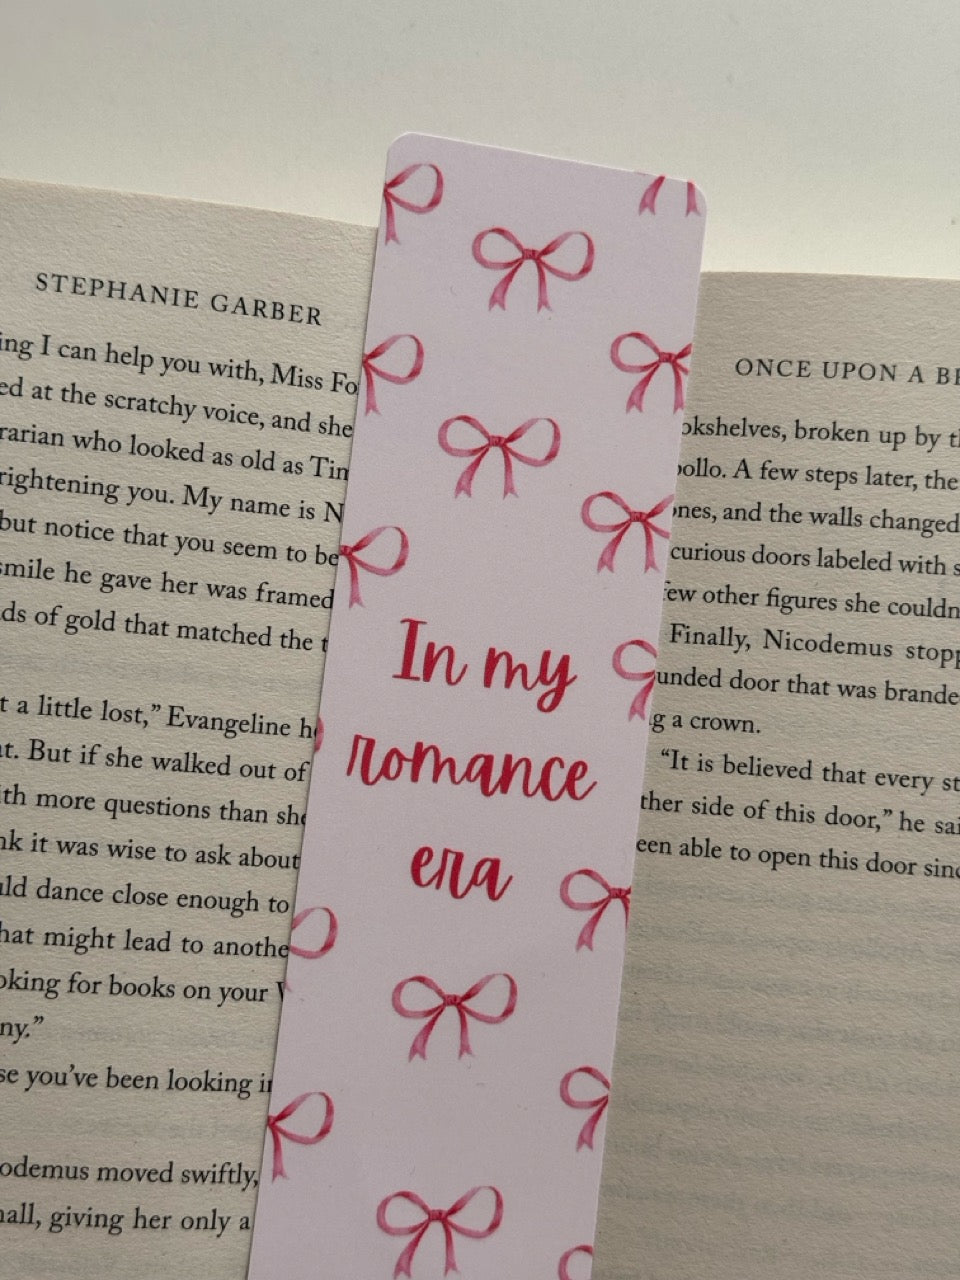 STEPHANIE GARBER
ing I can help you with, Miss Fo
ed at the scratchy voice, and she
rarian who looked as old as Tim
rightening you. My name is N
but notice that you seem to be
smile he gave her was framed
ds of gold that matched the t
t a little lost,” Evangeline he
at. But if she walked out of
ith more questions than she
nk it was wise to ask about
uld dance close enough to
hat might lead to anothe
oking for books on your V
ny.”
se you’ve been looking in
odemus moved swiftly,
hall, giving her only a
In my
romance
era
ONCE UPON A BR
okshelves, broken up by th
pollo. A few steps later, the
ones, and the walls changed
curious doors labeled with s
few other figures she couldn
Finally, Nicodemus stopp
unded door that was brande
g a crown.
“It is believed that every st
ther side of this door,” he sai
een able to open this door sinc